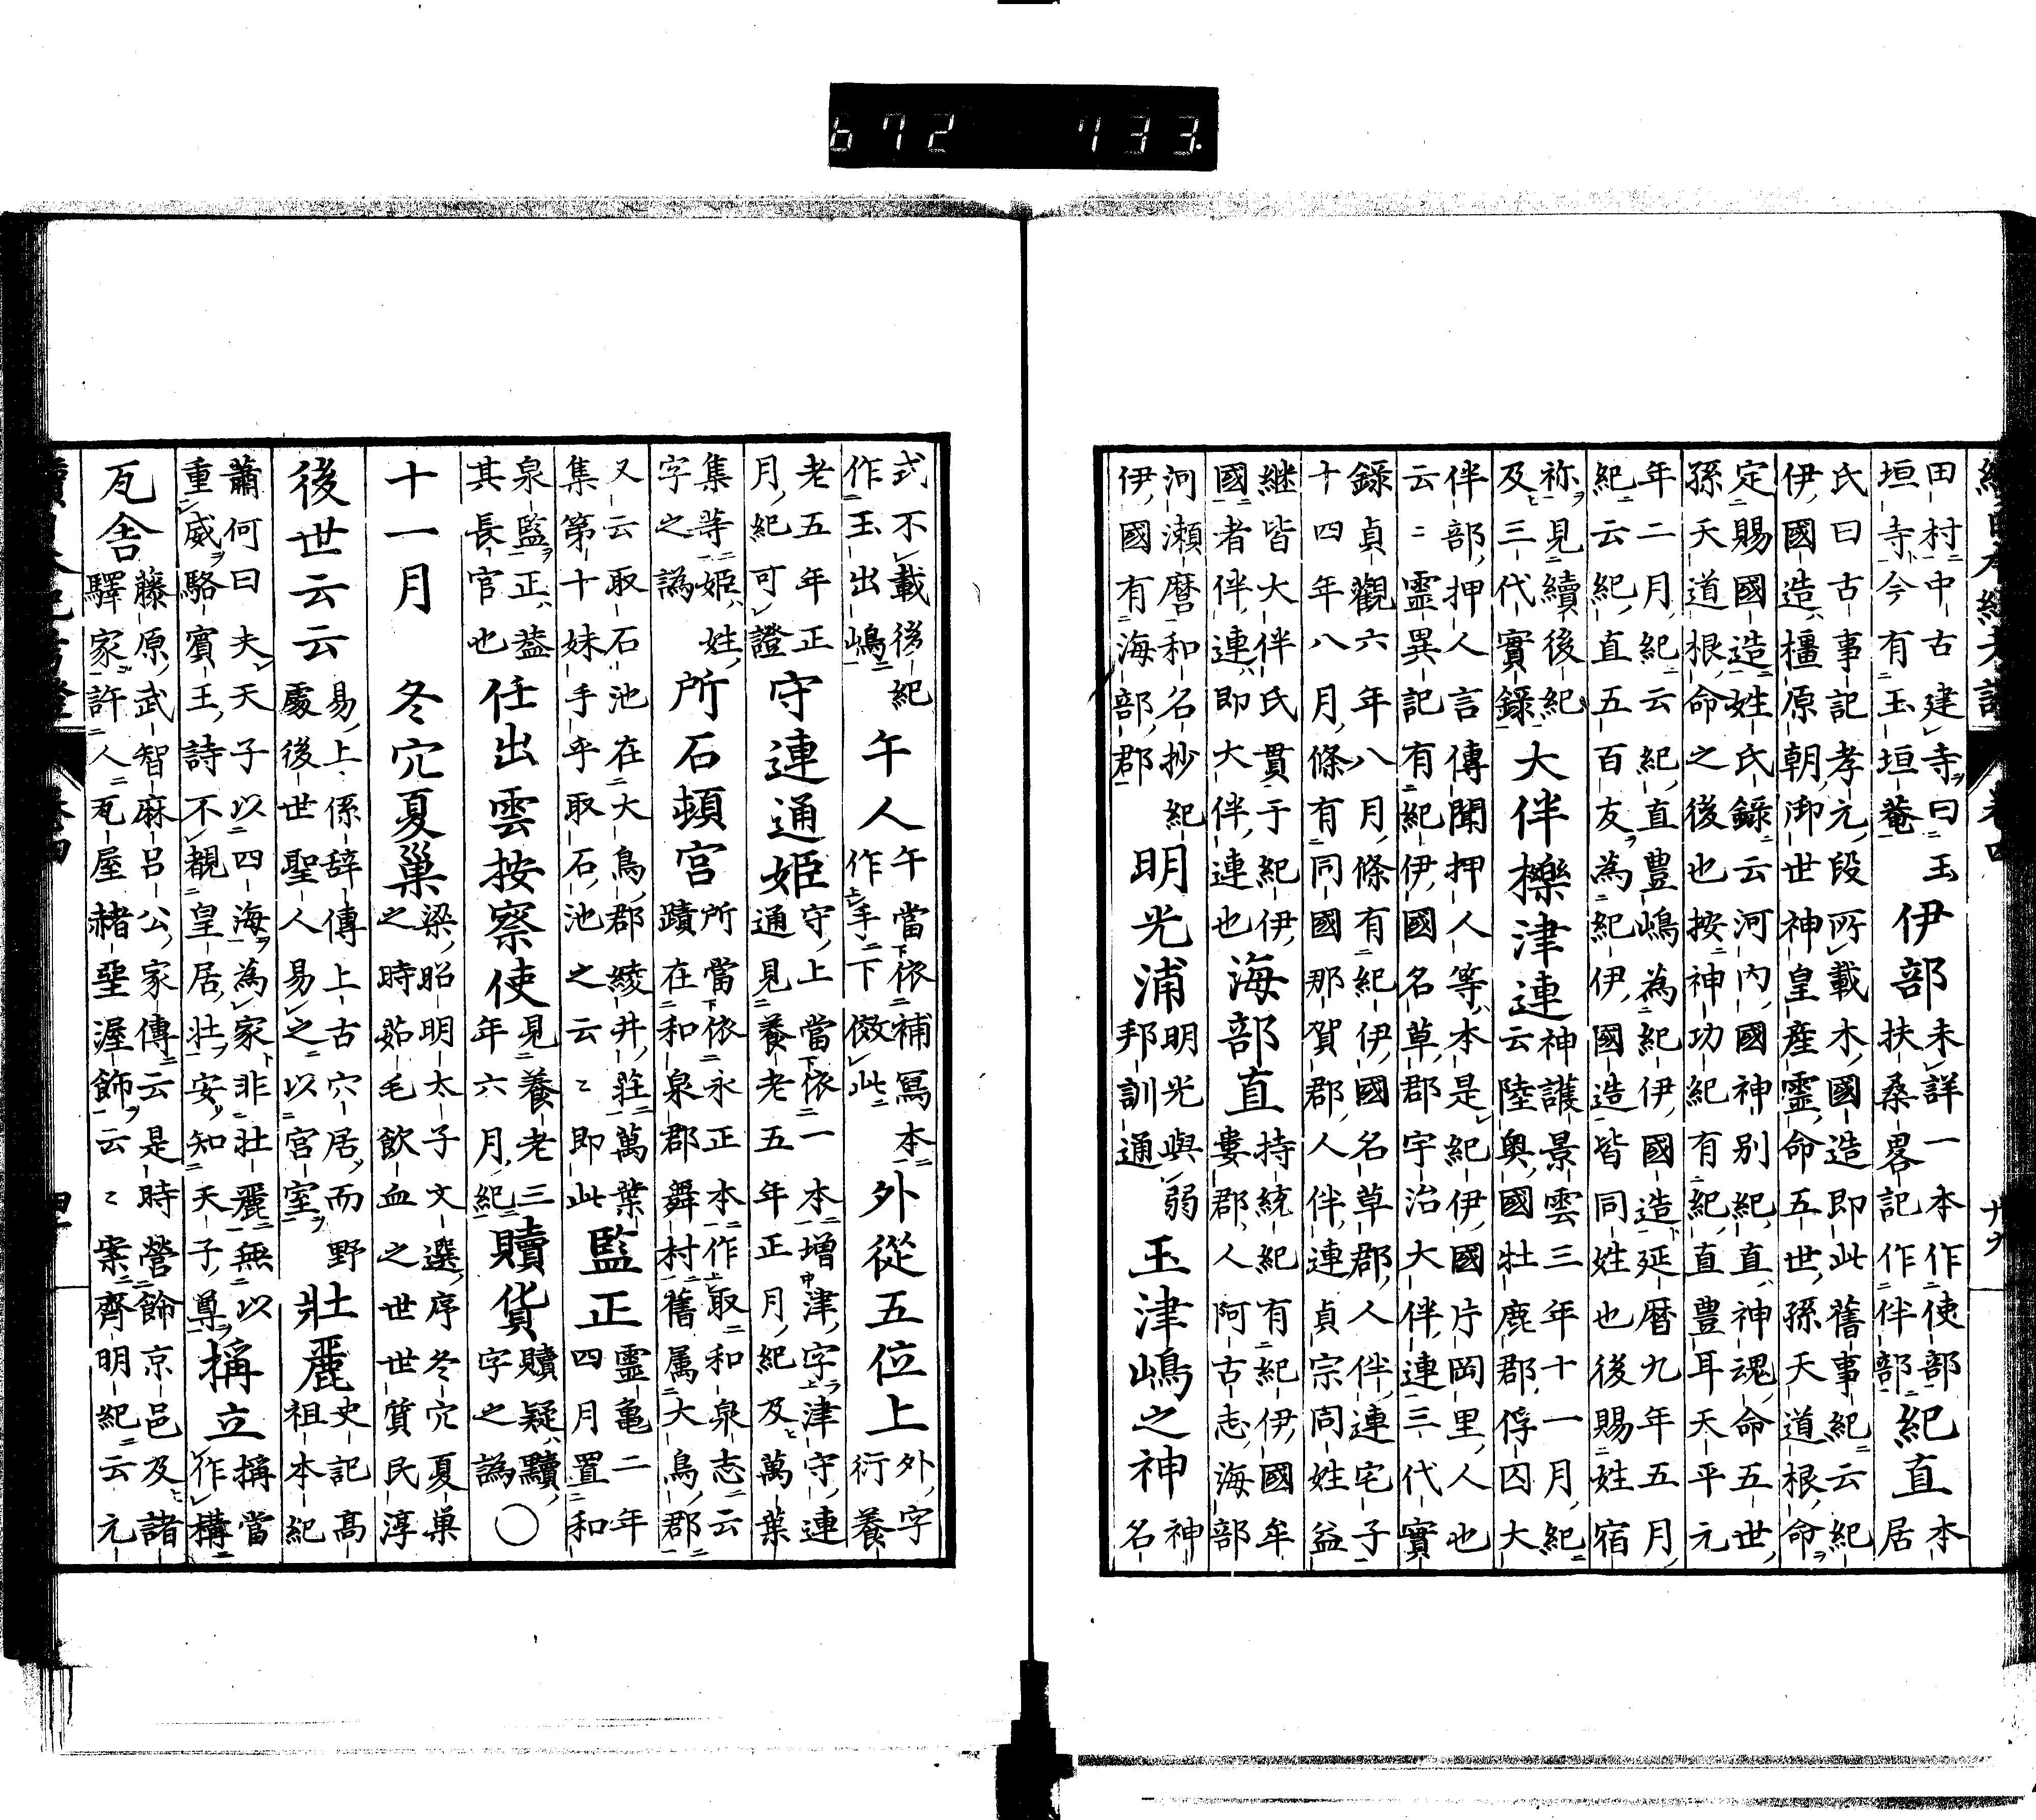 續日本紀考證 卷四 廿九
田村中古建寺曰玉
垣寺今有玉垣菴
伊部
未詳一本作使部
扶桑畧記作伴部
紀直
本
居
氏曰古事記孝元段所載木國造即此舊事紀云紀
伊國造橿原朝御世神皇産靈命五世孫天道根命
定賜國造姓氏錄云河内國神別紀直神魂命五世
孫天道根命之後也按神功紀有紀直豊耳天平元
年二月紀云紀直豊嶋為紀伊國造延暦九年五月
紀云紀直五百友為紀伊國造皆同姓也後賜姓宿
祢見續後紀
及三代實錄
大伴櫟津連
神護景雲三年十一月紀
云陸奥國牡鹿郡俘囚大
伴部押人言傳聞押人等本是紀伊國片岡里人也
云〻靈異記有紀伊國名草郡宇治大伴連三代實
錄貞觀六年八月條有紀伊國名草郡人伴連宅子
十四年八月條有同國那賀郡人伴連貞宗同姓益
継皆大伴氏貫于紀伊
國者伴連即大伴連也
海部直
持統紀有紀伊國牟
婁郡人阿古志海部
河瀬麿和名抄紀
伊國有海部郡
明光浦
明光與弱
邦訓通
玉津嶋之神
神
名
式不載後紀
作玉出嶋
午人
午當依補寫本
作手下倣此
外從五位上
外字
衍養
老五年正
月紀可證
守連通姫
守上當依一本增津字津守連
通見養老五年正月紀及萬葉
集等姫姓
字之譌
所石頓宮
所當依永正本作取和泉志云
蹟在和泉郡舞村舊属大鳥郡
又云取石池在大鳥郡綾井莊萬葉
集第十妹手乎取石池之云〻即此
監正
靈亀二年
四月置和
泉監正葢
其長官也
任出雲按察使
見養老三
年六月紀
贖貨
贖疑黷
字之譌
○
十一月 冬穴夏巢
梁昭明太子文選序冬穴夏巢
之時茹毛飲血之世世質民淳
後世云云
易上係辞傳上古穴居而野
處後世聖人易之以宮室
壯麗
史記髙
祖本紀
蕭何曰夫天子以四海為家非壯麗無以
重威駱賓王詩不覩皇居壯安知天子尊
稱立
稱當
作構
瓦舎
藤原武智麻呂公家傳云是時營餝京邑及諸
驛家許人瓦屋赭堊渥飾云〻案齊明紀云元
672 733